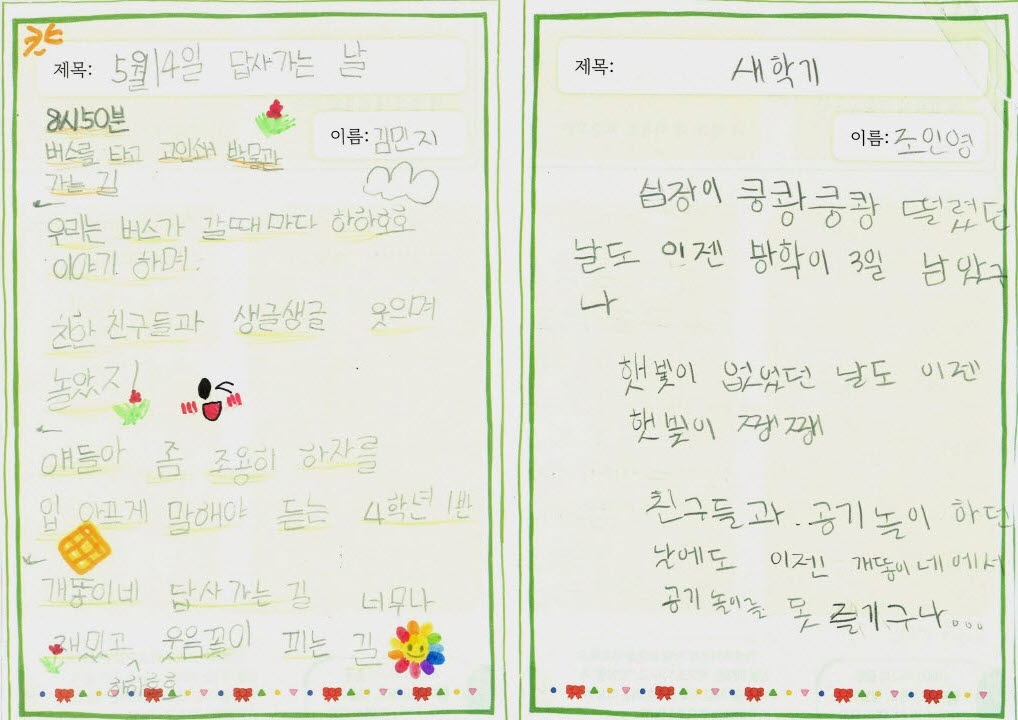 제목: 5월14일 답사가는 날
이름: 김민지
8시50분
버스를 타고 고인쇄 박물관
가는 길
우리는 버스가 갈때 마다 하하호호
이야기 하며.
친한 친구들과 생글생글 웃으며
놀았지!
얘들아 좀 조용히 하자를
입 아프게 말해야 듣는 4학년 1반
개똥이네 답사 가는 길 너무나
재밌고 웃음꽃이 피는 길
하하호호
제목: 새학기
이름: 조인영
심장이 쿵쾅쿵쾅 떨렸던
날도 이젠 방학이 3일 남았구
나
햇빛이 없었던 날도 이젠
햇빛이 쨍쨍
친구들과 공기놀이 하던
날에도 이젠 개똥이네에서
공기 놀이를 못 즐기구나...